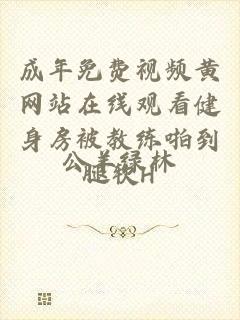 成年免费视频黄
网站在线观看健
身房被教练啪到
腿软H
公羊绿林